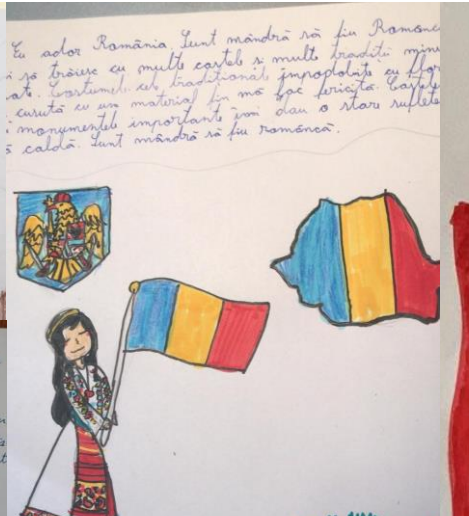 Eu ador România. Sunt mândră să fiu Românc
să trăiesc cu multe castele si multe tradiții minu
ate. Costumele tradiționale împopoțite cu flor
cusută cu un material fin mă fac fericită. Castele
monumentele importante îmi dau o stare suflete
caldă. Sunt mândră să fiu româncă.